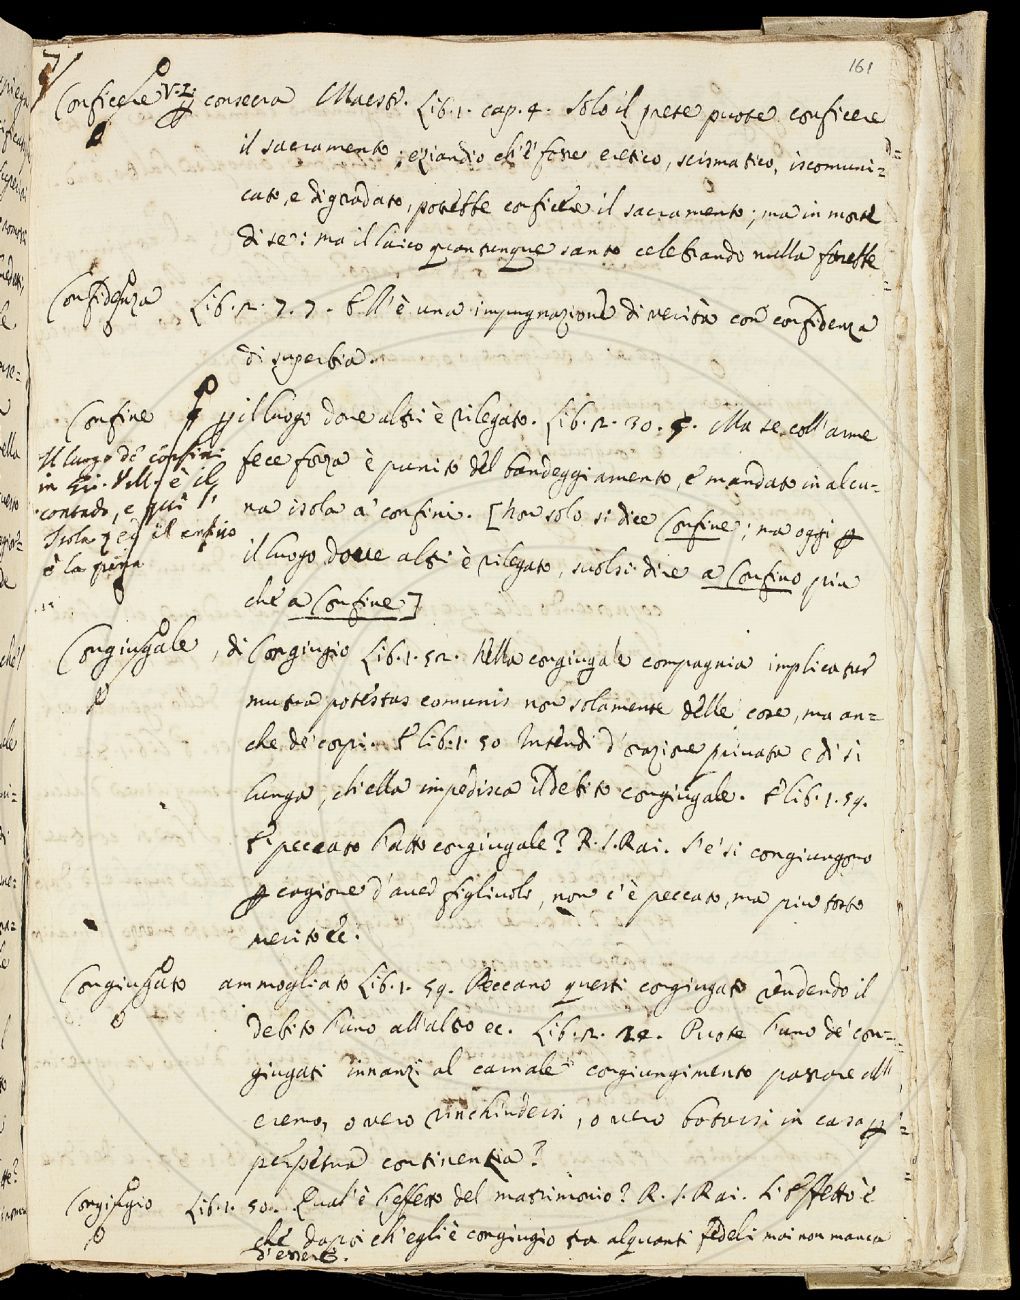 161
Conficere V. L. consecra Maestr. Lib. 1. cap. 4. Solo il prete puote conficere
il sacramento; eziandio ch'e' fosse eretico, scismatico, iscomuni=
cato, e digradato, potrebbe conficere il sacramento; ma in morte
di se: ma il laico quantunque santo celebrando nulla farebbe
Confidenza Lib. 2. 7. 7. Ell'è una impugnazione di verità con confidenza
di superbia.
Confine p il luogo dove altri è rilegato. Lib. 2. 30. 5. Ma se coll'arme
fece forza è punito del bandeggiamento, e mandato in alcu=
na isola a' confini. [Non solo si dice Confine; ma oggi p
il luogo dove altri è rilegato, suolsi dire a Confino piu
che a Confine]
Il luogo de' confini
in è il
contado, e qui l'
Isola ed il
è la
Congiugale, di Congiugio Lib. 1. 52. Nella congiugale compagnia implicatur
mutua potestas comunis non solamente delle cose, ma an=
che de' corpi. E lib. 1. 50 Intendi d'orazione privata e di sì
lunga, ch'ella impedisca il Debito congiugale. E lib. 1. 59.
E' peccato l'atto congiugale? R. S. Rai. S'e' si congiungono
p cagione d'aver figliuoli, non c'è peccato, ma piu tosto
merito &c.
Congiugato ammogliato Lib. 1. 59. Peccano questi congiugati rendendo il
debito l'uno all'altro ec. Lib. 2. 24. Puote l'uno de' con=
giugati innanzi al carnale congiungimento passare all'
eremo, o vero rinchiudersi, o vero botarsi in casa p
perpetua continentia?
Congiugio Lib. 1. 50. Qual'è l'effetto del matrimonio? R. S. Rai. L'Effetto è
che dapoi ch'egli è congiugio tra alquanti fedeli mai non manca
d'essere.